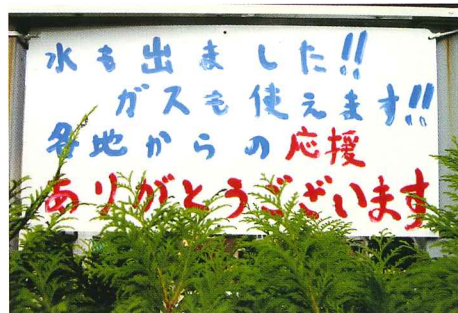 水も出ました!!
ガスも使えます!!
各地からの応援
ありがとうございます